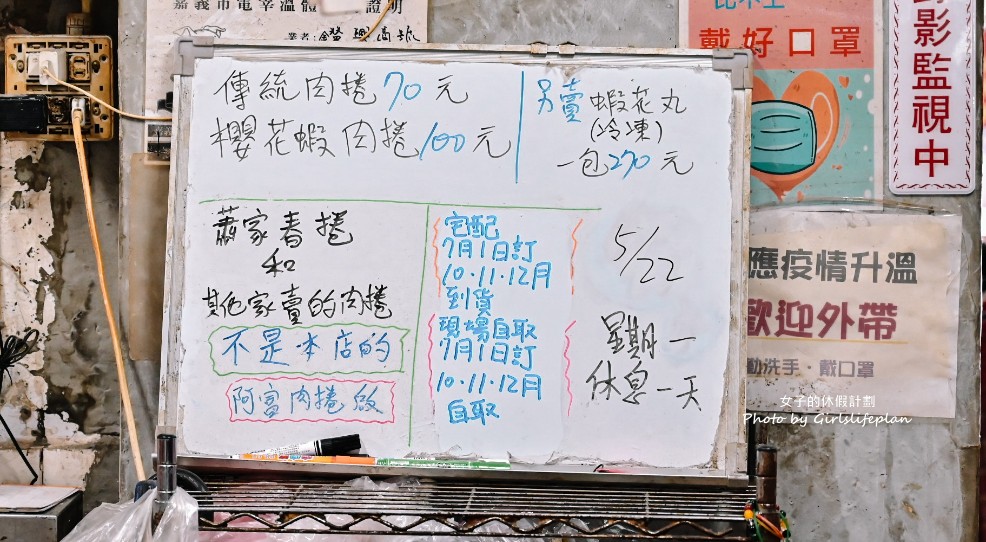 嘉義市電宰溫體
證明
業者:
傳統肉捲70元
櫻花蝦肉捲100元
另賣
蝦花丸
(冷凍)
一包270元
蕭家春捲
和
其他家賣的肉捲
不是本店的
阿富肉捲啟
宅配
7月1日訂
10.11.12月
到貨
現場自取
7月1日訂
10.11.12月
自取
5/22
星期一
休息一天
戴好口罩
錄影監視中
應疫情升溫
歡迎外帶
勤洗手・戴口罩
女子的休假計劃
Photo by Girlslifeplan